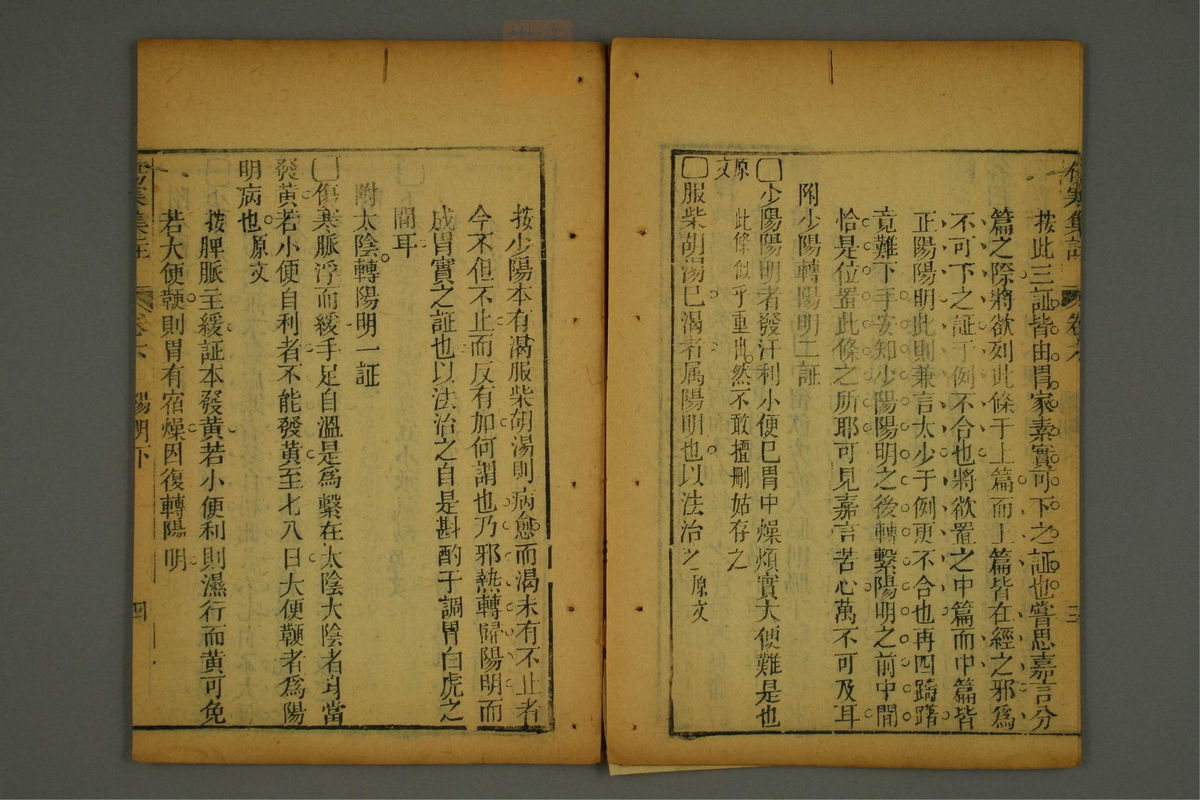 傷寒集註 卷六 三
按此三証皆由胃家素實可下之証也嘗思嘉言分
篇之際將欲列此條于上篇而上篇皆在經之邪爲
不可下之証于例不合也將欲置之中篇而中篇皆
正陽陽明此則兼言太少于例更不合也再四躊躇
竟難下手安知少陽陽明之後轉繫陽明之前中間
恰是位置此條之所耶可見嘉言苦心萬不可及耳
附少陽轉陽明二証
少陽陽明者發汗利小便巳胃中燥煩實大便難是也
原文
此條似乎重出然不敢擅刪姑存之
服柴胡湯巳渴者属陽明也以法治之原文
按少陽本有渴服柴胡湯則病愈而渴未有不止者
今不但不止而反有加何謂也乃邪熱轉歸陽明而
成胃實之証也以法治之自是斟酌于調胃白虎之
間耳
附太陰轉陽明一証
傷寒脈浮而緩手足自溫是爲繫在太陰太陰者身當
發黃若小便自利者不能發黃至七八日大便鞕者爲陽
明病也原文
按脾脈主緩証本發黃若小便利則濕行而黃可免
若大便鞕則胃有宿燥因復轉陽明
傷寒集註 卷六 陽明下 四